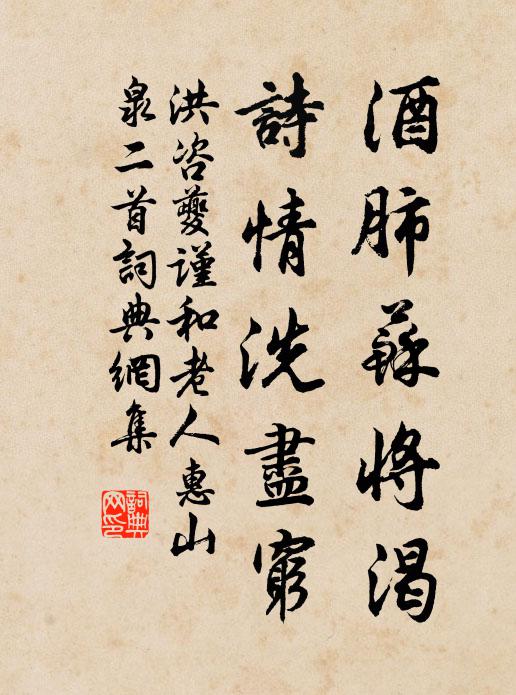 酒肺蘇將渴
詩情洗盡窮
洪咨夔謹和老人惠山
泉二首詞典網集
詞典
网印